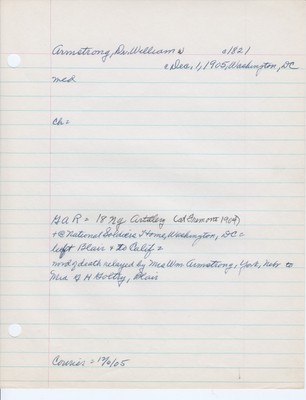 Armstrong, Dr. William W c1821
c Dec, 1, 1905, Washington, DC
med
ch =
G A R = 18 Ny Artillery (at Fremont 1904)
+@ National Soldiers Home, Washington, DC =
left Blair & to Calif =
word of death relayed by Mrs Wm Armstrong, York, Nebr to
Mrs G H Goltry, Blair
Courier = 12/6/05